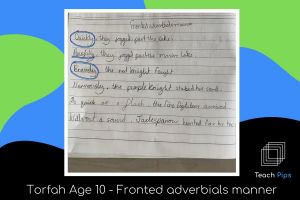 Fronted adverbials manner
Quickly, they jogged past the lake.
they jogged past the lake.
Bravely, the red knight fought
Nervously, the purple knight stabbed his sword.
As quick as a flash, the fire fighters arrived.
Without a sound, hunted for
Teach Pips
Torfah Age 10 - Fronted adverbials manner